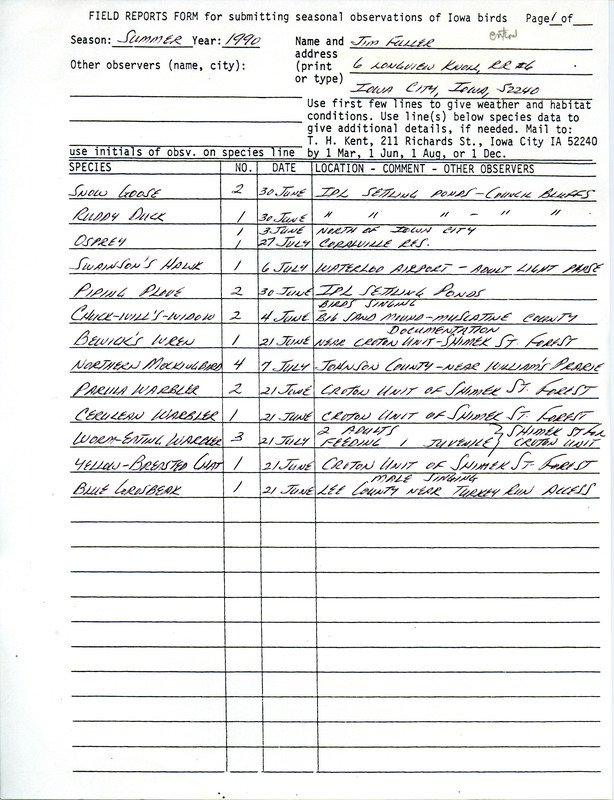 FIELD REPORTS FORM for submitting seasonal observations of Iowa birds Page 1 of
Season: SUMMER Year: 1990 Name and JIM FULLER
address
Other observers (name, city): (print 6 LONGVIEW KNOLL, RR #6
or type)
IOWA CITY, IOWA, 52240
Use first few lines to give weather and habitat
conditions. Use line(s) below species data to
give additional details, if needed. Mail to:
T. H. Kent, 211 Richards St., Iowa City IA 52240
use initials of obsv. on species line by 1 Mar, 1 Jun, 1 Aug, or 1 Dec.
SPECIES NO. DATE LOCATION - COMMENT - OTHER OBSERVERS
SNOW GOOSE 2 30 JUNE IPL SETTLING PONDS - COUNCIL BLUFFS
RUDDY DUCK 1 30 JUNE " " " - " "
1 3 JUNE NORTH OF IOWA CITY
OSPREY 1 27 JULY CORALVILLE RES.
SWAINSON'S HAWK 1 6 JULY WATERLOO AIRPORT - ADULT LIGHT PHASE
PIPING PLOVE 2 30 JUNE IPL SETTLING PONDS
BIRDS SINGING
CHUCK-WILL'S-WIDOW 2 4 JUNE BIG SAND MOUND - MUSCATINE COUNTY
DOCUMENTATION
BEWICK'S WREN 1 21 JUNE NEAR CROTON UNIT - SHIMEK ST. FOREST
NORTHERN MOCKINGBIRD 4 7 JULY JOHNSON COUNTY - NEAR WILLIAM'S PRARIE
PARULA WARBLER 2 21 JUNE CROTON UNIT OF SHIMEK ST. FOREST
CERULEAN WARBLER 1 21 JUNE CROTON UNIT OF SHIMEK ST. FOREST
WORM-EATING WARBLER 3 21 JULY 2 ADULTS FEEDING 1 JUVENILE } SHIMEK ST FOR CROTON UNIT
YELLOW-BREASTED CHAT 1 21 JUNE CROTON UNIT OF SHIMEK ST. FOREST
MALE SINGING
BLUE GROSBEAK 1 21 JUNE LEE COUNTY NEAR TURKEY RUN ACCESS